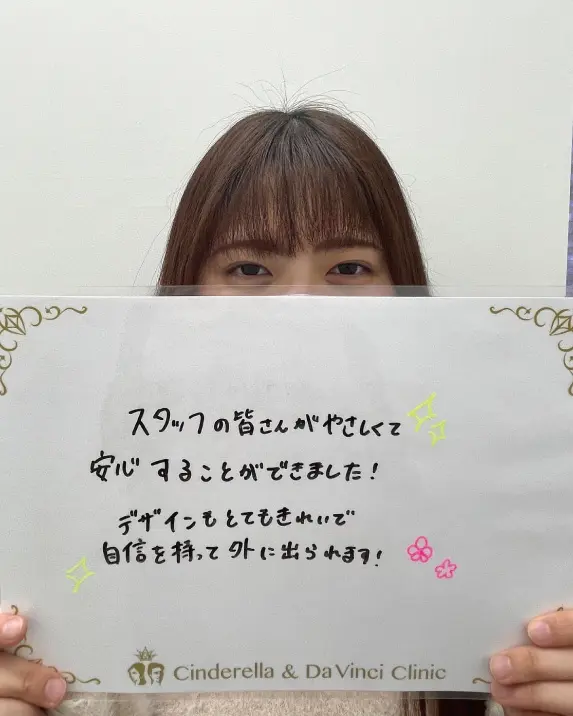 スタッフの皆さんがやさしくて
安心することができました!
デザインもとてもきれいで
自信を持って外に出られます!
Cinderella & DaVinci Clinic